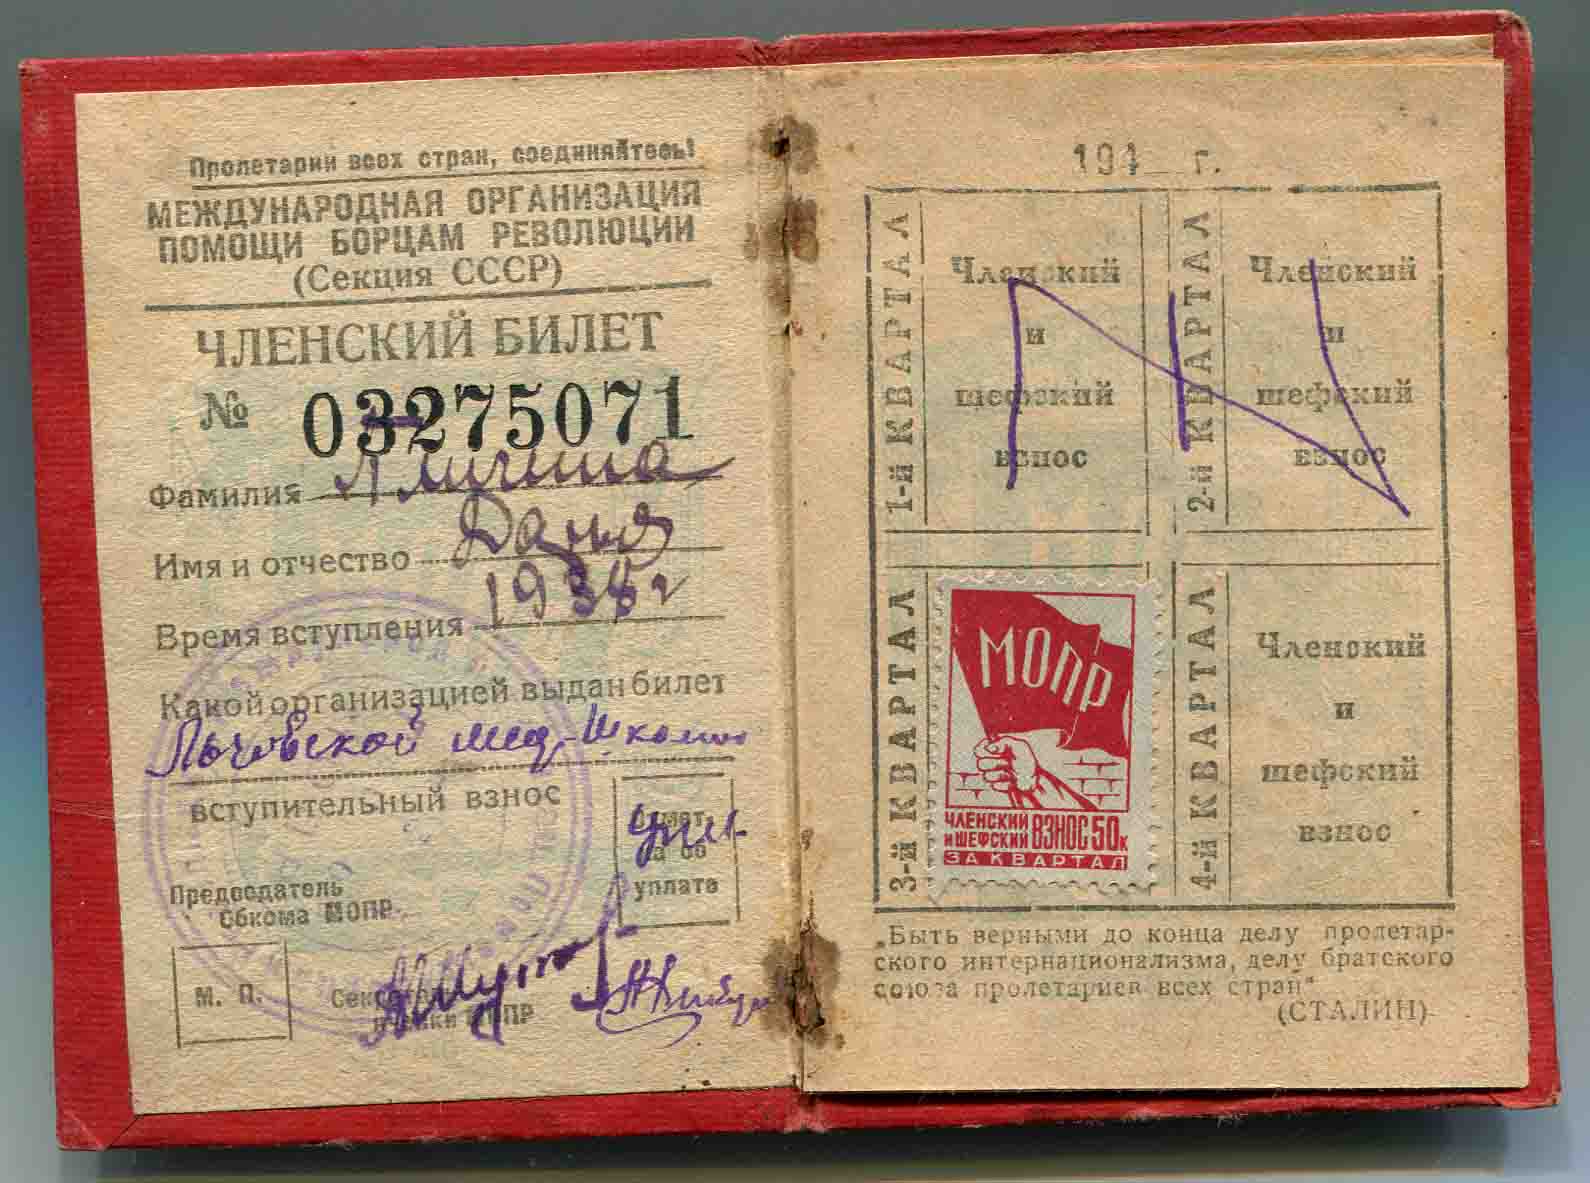 Пролетарии всех стран, соединяйтесь!
МЕЖДУНАРОДНАЯ ОРГАНИЗАЦИЯ
ПОМОЩИ БОРЦАМ РЕВОЛЮЦИИ
(Секция СССР)
ЧЛЕНСКИЙ БИЛЕТ
№ 03275071
Фамилия
Имя и отчество Дания
Время вступления 1938 г
Какой организацией выдан билет
мед-Школы
вступительный взнос
уплате
Председатель
Обкома МОПР
М. П.
МОПР
194 г.
1-й КВАРТАЛ
Членский
и
шефский
взнос
2-й КВАРТАЛ
Членский
и
шефский
взнос
3-й КВАРТАЛ
МОПР
ЧЛЕНСКИЙ
и ШЕФСКИЙ ВЗНОС 50к
ЗА КВАРТАЛ
4-й КВАРТАЛ
Членский
и
шефский
взнос
„Быть верными до конца делу пролетар-
ского интернационализма, делу братского
союза пролетариев всех стран"
(СТАЛИН)